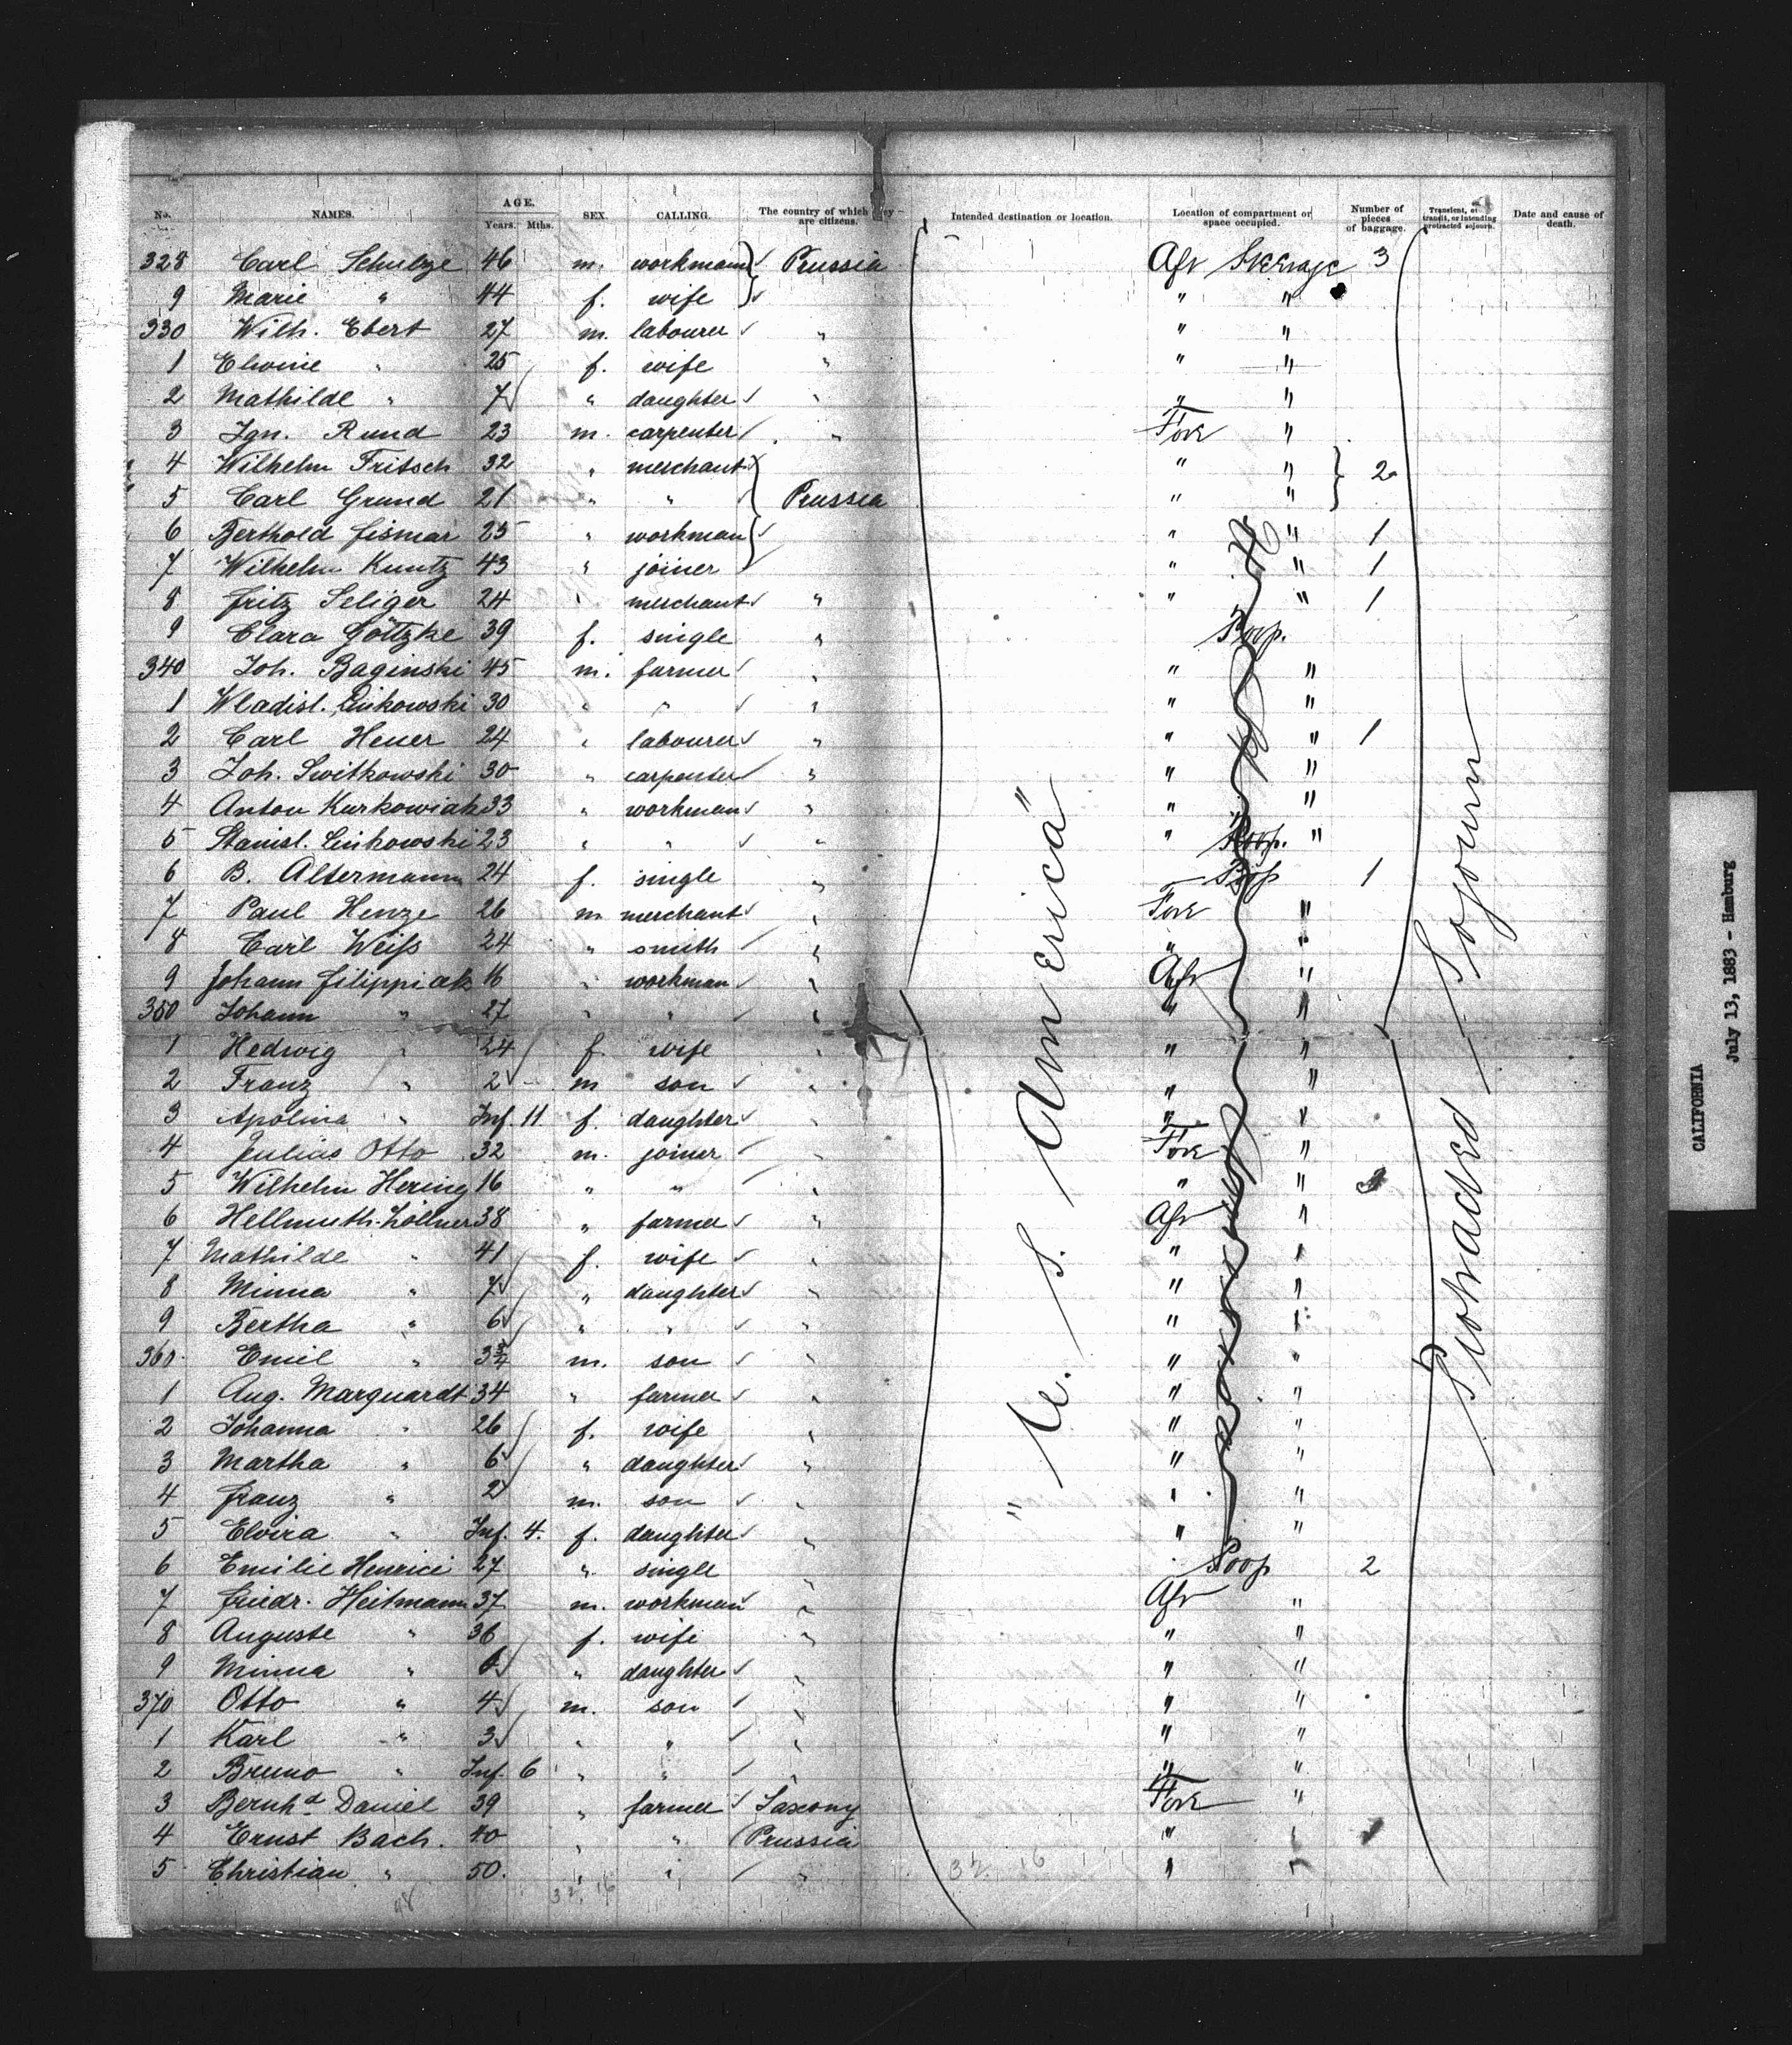 No. NAMES. AGE. Years. Mths. SEX. CALLING. The country of which they are citizens. Intended destination or location. Location of compartment or space occupied. Number of pieces of baggage. Transient, or in transit, or intending protracted sojourn. Date and cause of death.
328 Carl Schulze 46 m. workman Prussia Aft Steerage 3
9 Marie " 44 f. wife " "
330 Wilh. Ebert 27 m. labourer " " "
1 Elwine " 25 f. wife " " "
2 Mathilde " 7 " daughter " " "
3 Ign. Rund 23 m. carpenter " Fore "
4 Wilhelm Fritsch 32 " merchant " " 2
5 Carl Grund 21 " " Prussia " "
6 Berthold Fismar 25 " workman " " 1
7 Wilhelm Kuntz 43 " joiner " " 1
8 Fritz Seliger 24 " merchant " " " 1
9 Clara Göttzke 39 f. single " Poop.
340 Joh. Baginski 45 m. farmer " " "
1 Wladisl. Linkowski 30 " " " " "
2 Carl Heuer 24 " labourer " " " 1
3 Joh. Switkowski 30 " carpenter " " "
4 Anton Kurkowiak 33 " workman " " "
5 Stanisl. Linkowski 23 " " " " Poop. "
6 B. Altermann 24 f. single " Poop 1
7 Paul Henze 26 m merchant " Fore "
8 Carl Weiſs 24 " smith " " "
9 Johann Filippiak 16 " workman " Aft "
350 Johann " 27 " " " " "
1 Hedwig " 24 f. wife " " "
2 Franz " 2 m son " " "
3 Apolina " Inf. 11 f. daughter " " "
4 Julius Otto 32 m. joiner " Fore "
5 Wilhelm Hering 16 " " " " "
6 Hellmuth Zöllner 38 " farmer " Aft "
7 Mathilde " 41 f. wife " " "
8 Minna " 7 " daughter " " "
9 Bertha " 6 " " " " "
360 Emil " 3¾ m. son " " "
1 Aug. Marquardt 34 " farmer " " "
2 Johanna " 26 f. wife " " "
3 Martha " 6 " daughter " " "
4 Franz " 2 m. son " " "
5 Elvira " Inf. 4. f. daughter " " "
6 Emilie Henrici 27 " single " Poop 2
7 Friedr. Heitmann 37 m. workman " Aft "
8 Auguste " 36 f. wife " " "
9 Minna " 6 " daughter " " "
370 Otto " 4 m. son " " "
1 Karl " 3 " " " " "
2 Bruno " Inf. 6 " " " " "
3 Bernhd Daniel 39 " farmer Saxony Fore "
4 Ernst Bach. 40 " " Prussia " "
5 Christian " 50. " " " "
"U. S. America"
Protracted Sojourn
32. 16
32. 16
48
CALIFORNIA
July 13, 1883 - Hamburg